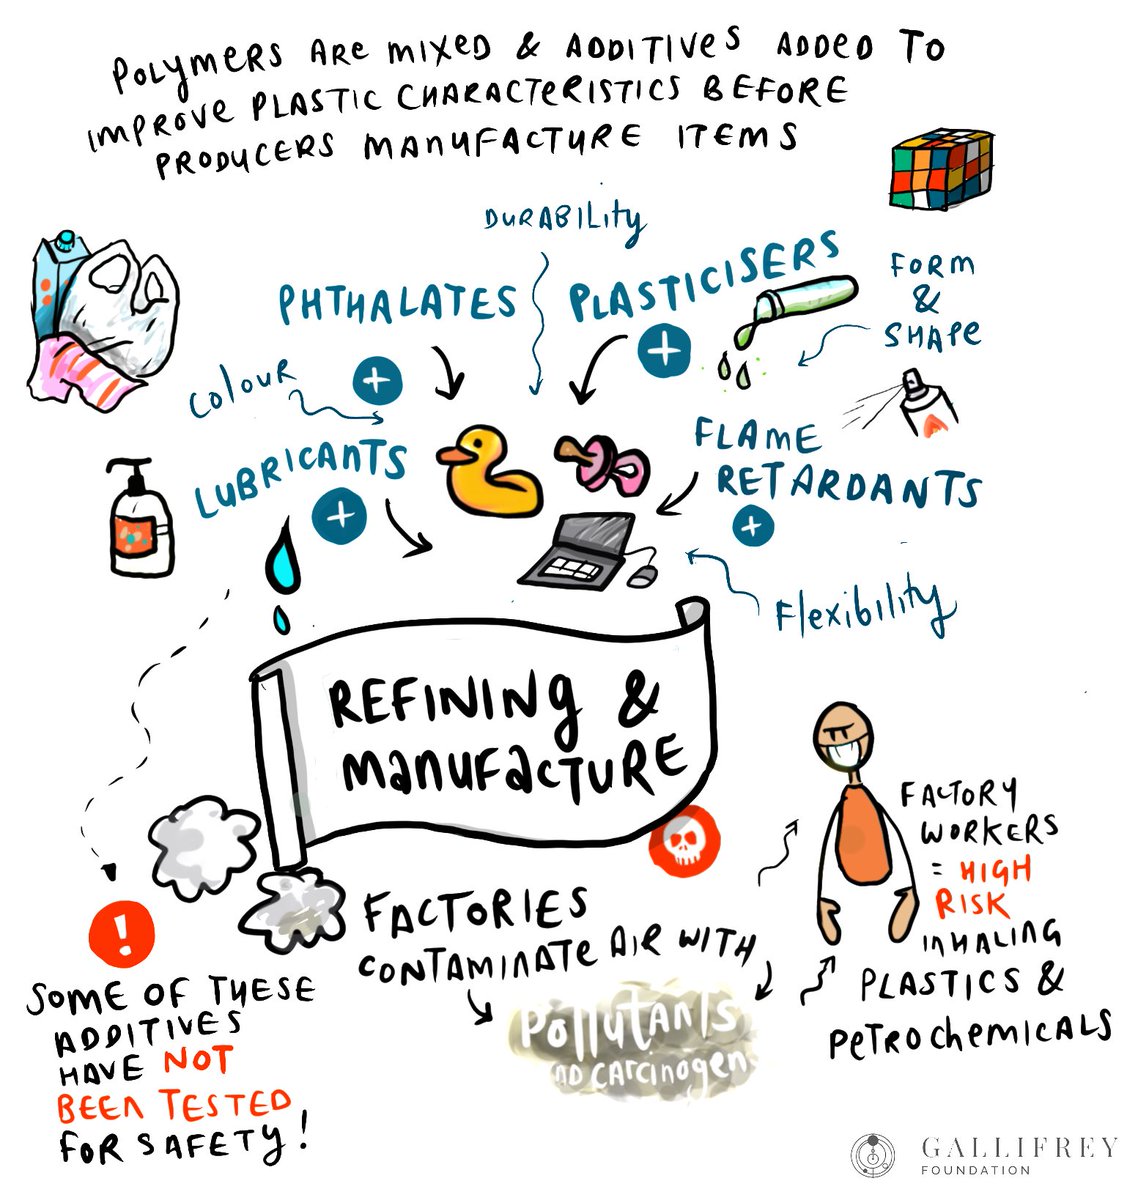 POLYMERS ARE MIXED & ADDITIVES ADDED TO
IMPROVE PLASTIC CHARACTERISTICS BEFORE
PRODUCERS MANUFACTURE ITEMS
DURABILITY
PHTHALATES
PLASTICISERS
FORM
&
SHAPE
COLOUR
LUBRICANTS
FLAME
RETARDANTS
Flexibility
REFINING &
MANUFACTURE
FACTORY
WORKERS
= HIGH
RISK
INHALING
PLASTICS &
PETROCHEMICALS
FACTORIES
CONTAMINATE AIR WITH
POLLUTANTS
ND CARCINOGEN
!
SOME OF THESE
ADDITIVES
HAVE NOT
BEEN TESTED
FOR SAFETY!
GALLIFREY
FOUNDATION